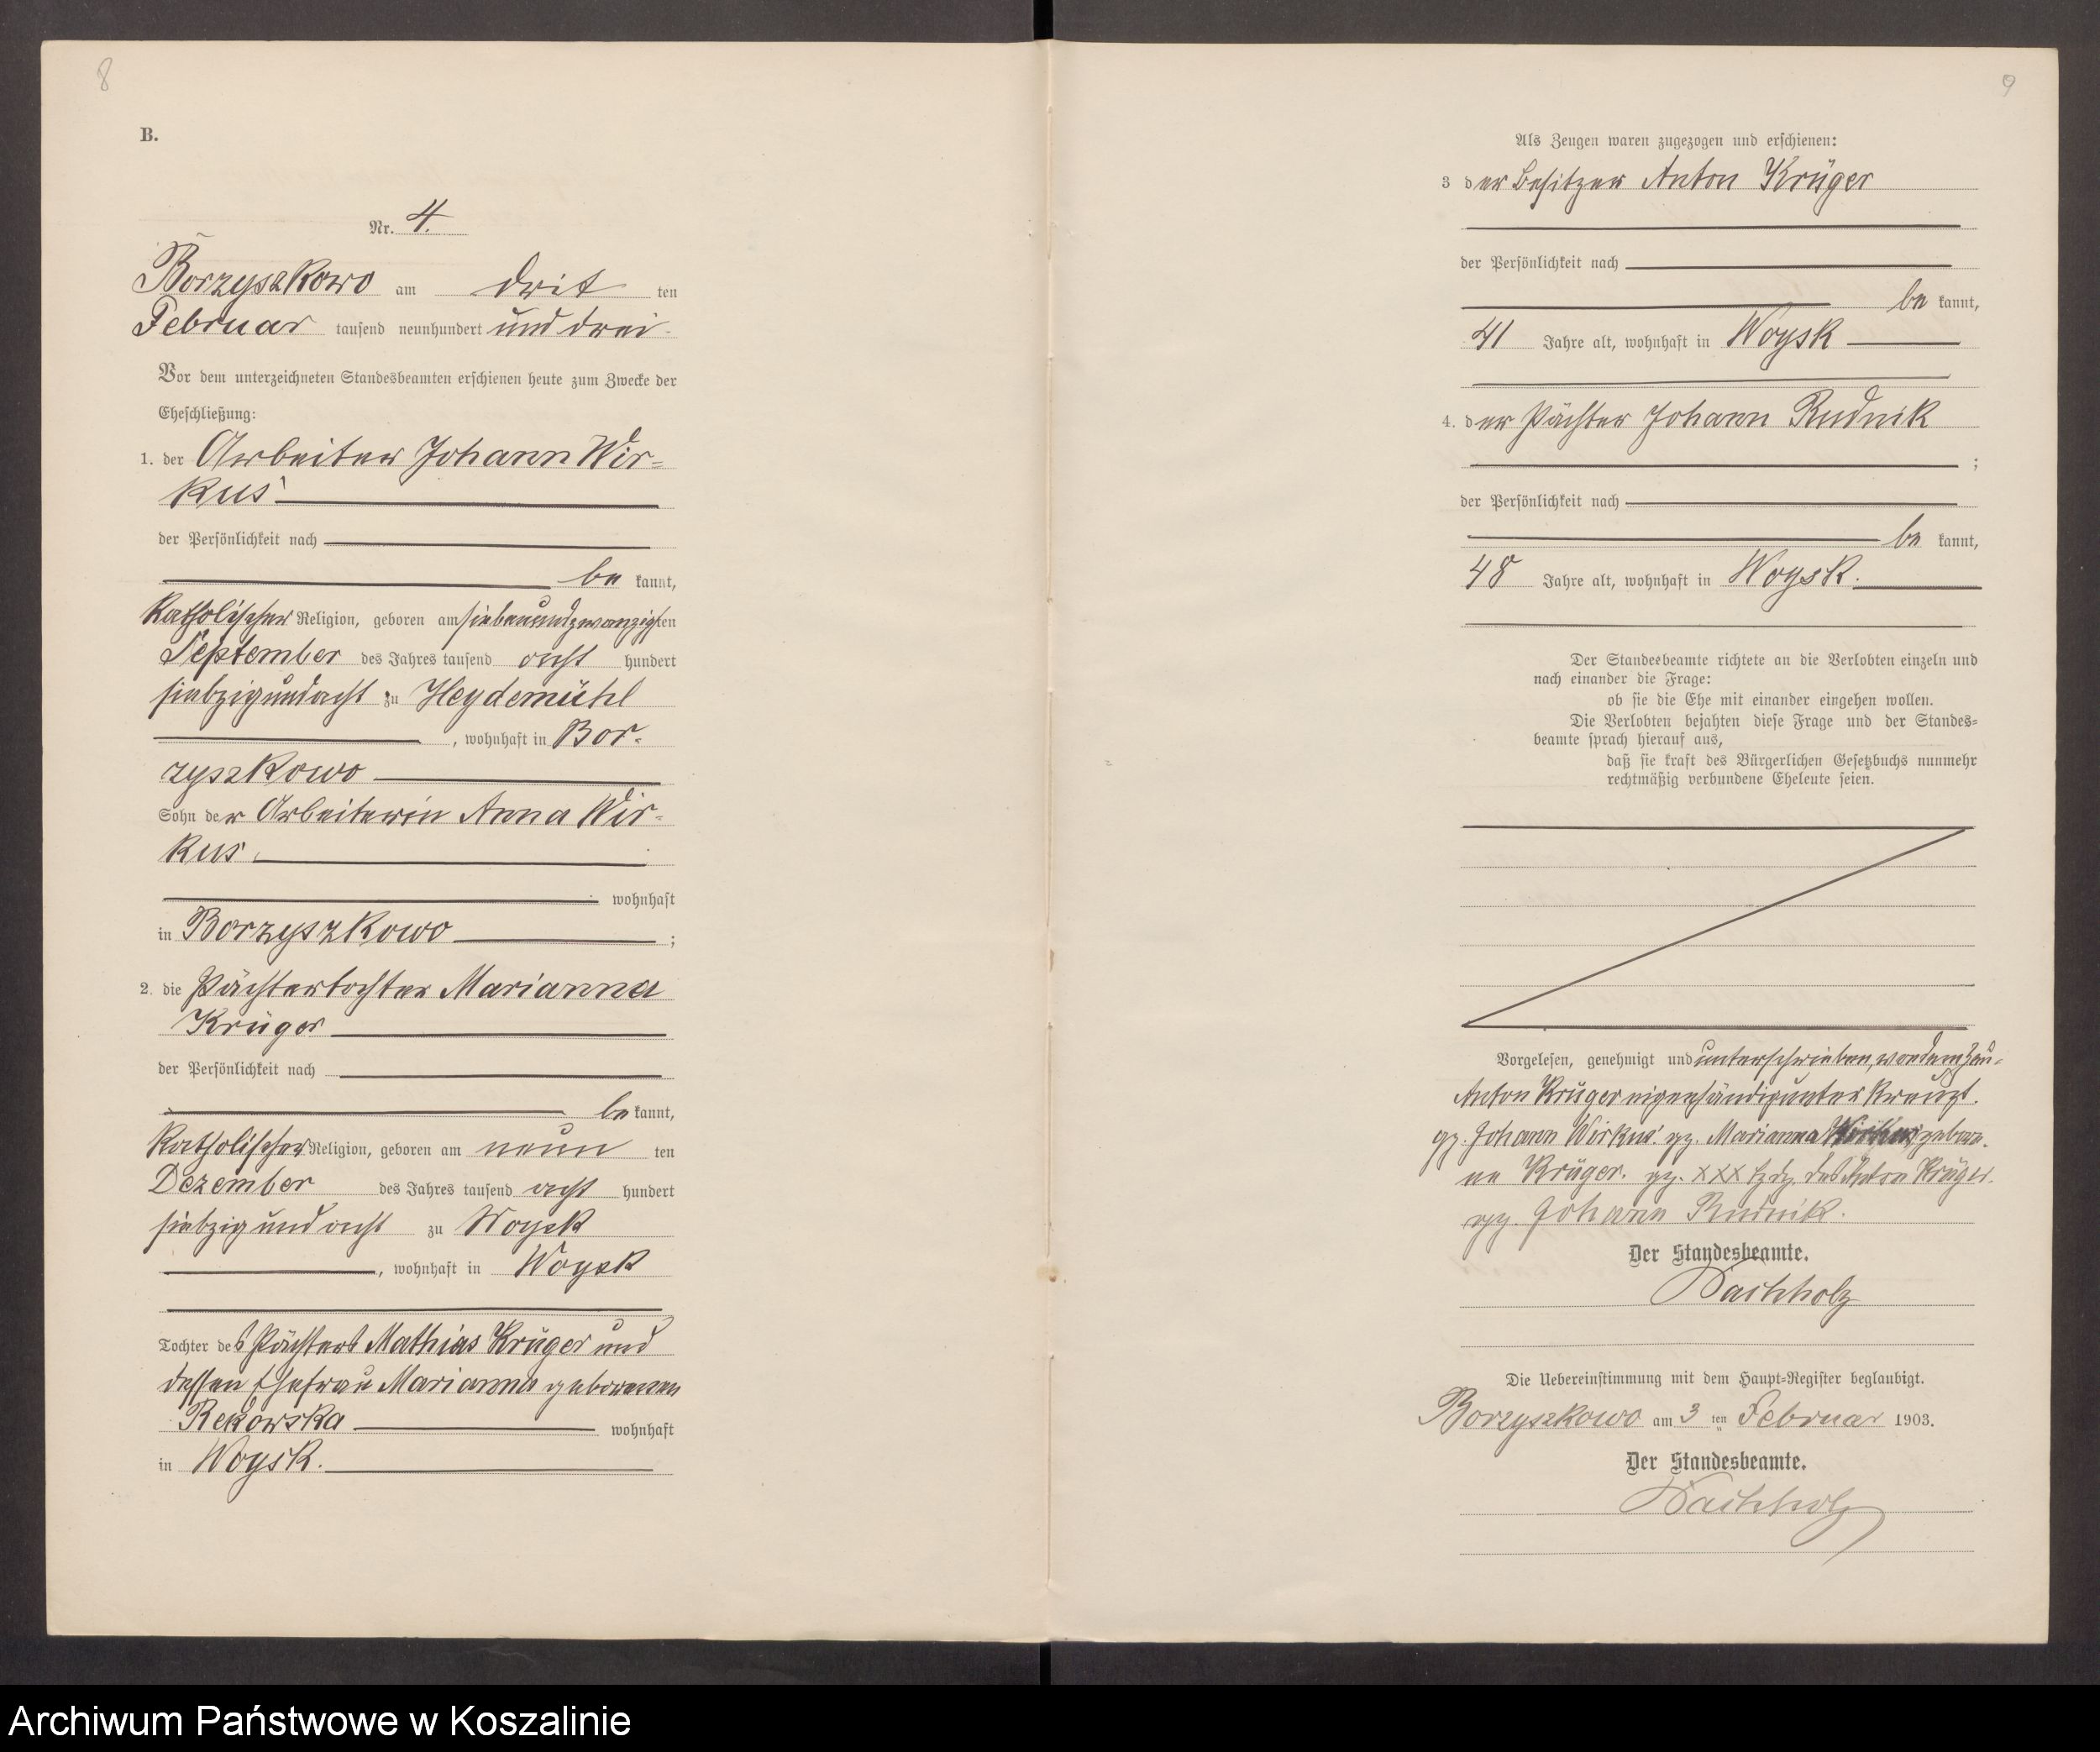 8
B.
Nr. 4.
Borzyszkowo am drit ten
Februar tausend neunhundert und drei
Vor dem unterzeichneten Standesbeamten erschienen heute zum Zwecke der
Eheschließung:
1. der Arbeiter Johann Wir-
kus
der Persönlichkeit nach
be kannt,
katholischer Religion, geboren am siebenundzwanzigsten
September des Jahres tausend acht hundert
siebzigundacht zu Heydemühl
, wohnhaft in Bor-
zyszkowo
Sohn der Arbeiterin Anna Wir-
kus
wohnhaft
in Borzyszkowo ;
2. die Pächtertochter Marianna
Krüger
der Persönlichkeit nach
be kannt,
katholischer Religion, geboren am neun ten
Dezember des Jahres tausend acht hundert
siebzig und acht zu Woysk
, wohnhaft in Woysk
Tochter des Pächters Mathias Krüger und
dessen Ehefrau Marianna geborenen
Rekowska wohnhaft
in Woysk.
9
Als Zeugen waren zugezogen und erschienen:
3 der Besitzer Anton Krüger
der Persönlichkeit nach
be kannt,
41 Jahre alt, wohnhaft in Woysk
4. der Pächter Johann Rudnik
;
der Persönlichkeit nach
be kannt,
48 Jahre alt, wohnhaft in Woysk.
Der Standesbeamte richtete an die Verlobten einzeln und
nach einander die Frage:
ob sie die Ehe mit einander eingehen wollen.
Die Verlobten bejahten diese Frage und der Standes-
beamte sprach hierauf aus,
daß sie kraft des Bürgerlichen Gesetzbuchs nunmehr
rechtmäßig verbundene Eheleute seien.
Vorgelesen, genehmigt und unterschrieben, von dem
Anton Krüger eigenhändig unter kreuzt.
gz. Johann Wirkus. gz. Marianna Wirkus gebore-
ne Krüger. gz. XXX Hdz. des Anton Krüger.
gz. Johann Rudnik.
Der Standesbeamte.
Der Uebereinstimmung mit dem Haupt-Register beglaubigt.
Borzyszkowo am 3 ten Februar 1903.
Der Standesbeamte.
Archiwum Państwowe w Koszalinie